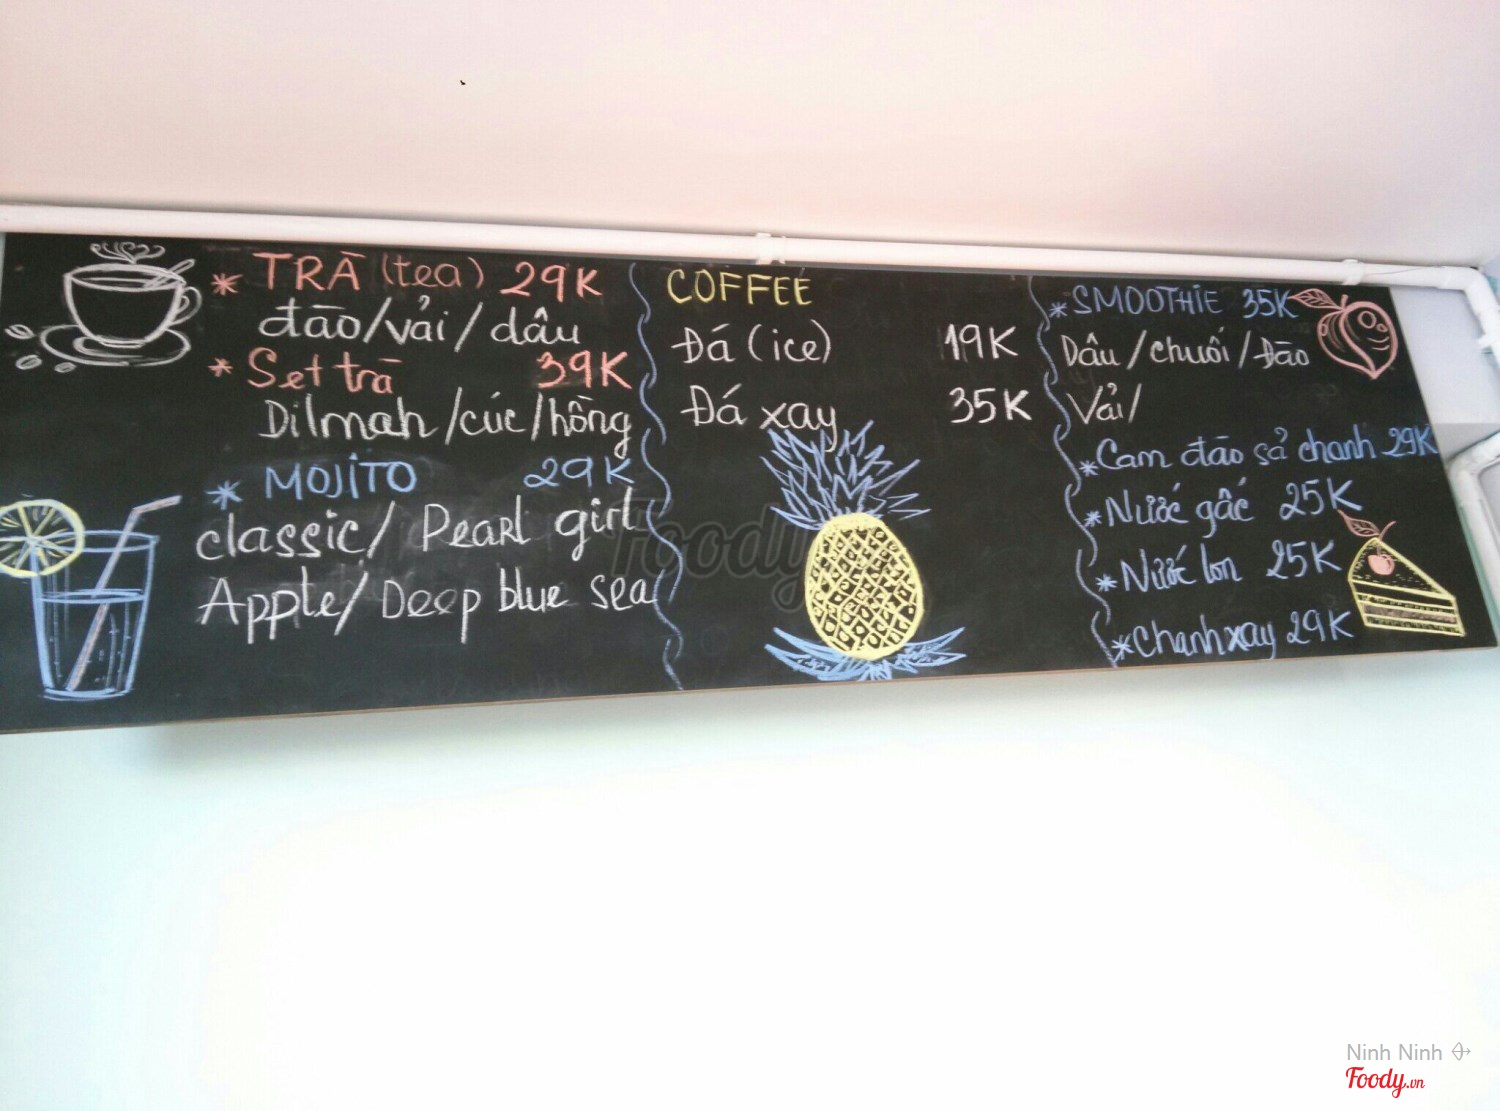 * TRÀ (tea) 29K
đào/vải/dâu
* Set trà 39K
Dilmah/cúc/hồng
* MOJITO 29K
classic/ Pearl girl
Apple/ Deep blue sea
COFFEE
Đá (ice) 19K
Đá xay 35K
* SMOOTHIE 35K
Dâu/chuối/Đào
Vải/
* Cam đào sả chanh 29K
* Nước gấc 25K
* Nước lon 25K
* Chanh xay 29K
Foody
Ninh Ninh
Foody.vn